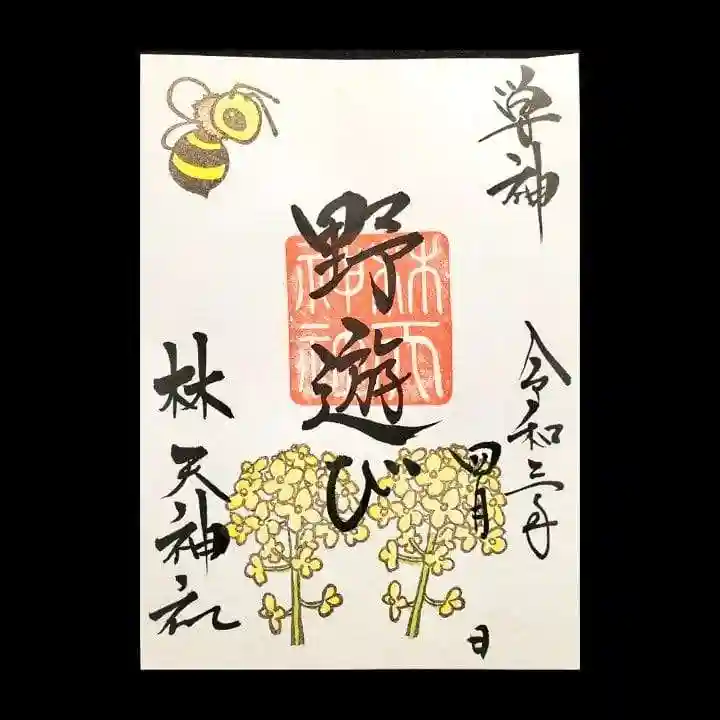 学神
令和三年
四月
日
野遊び
林天神社